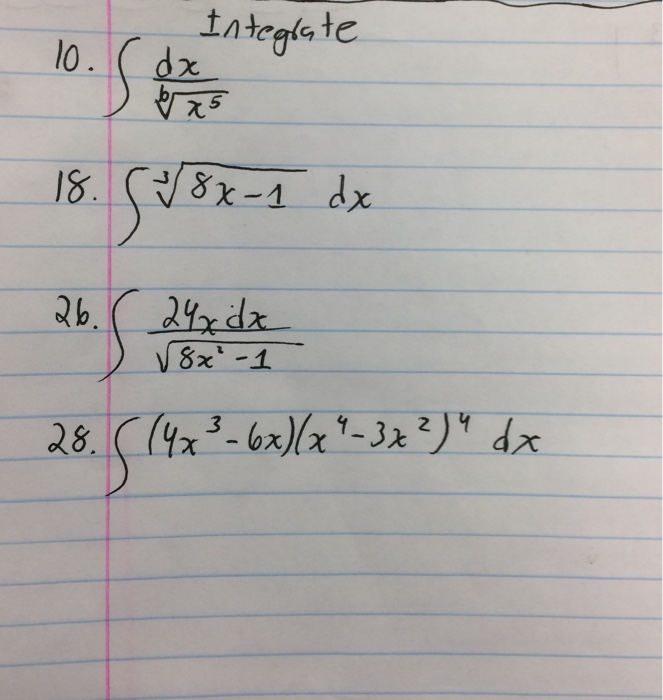 Integrate
10. ∫ dx / ⁶√x⁵
18. ∫ ³√8x-1 dx
26. ∫ 24x dx / √8x²-1
28. ∫ (4x³-6x)(x⁴-3x²)⁴ dx